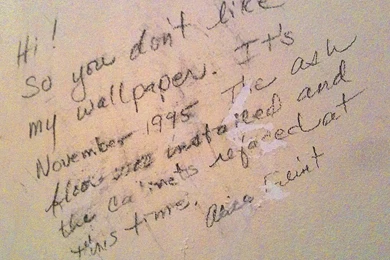 Hi!
So you don't like
my wallpaper. It's
November 1995 The ash
floor was installed and
the cabinets refaced at
this time.